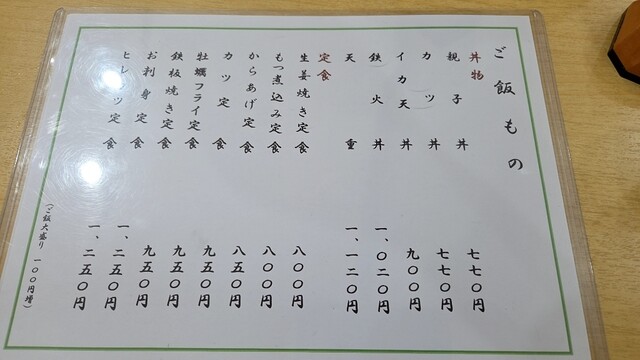 ご飯もの
丼物
親子丼 七七〇円
カツ丼 七七〇円
イカ天丼 九〇〇円
鉄火丼 一、〇二〇円
天重 一、一二〇円
定食
生姜焼き定食 八〇〇円
もつ煮込み定食 八〇〇円
からあげ定食 八五〇円
カツ定食 九五〇円
牡蠣フライ定食 九五〇円
鉄板焼き定食 九五〇円
お刺身定食 一、二五〇円
ヒレカツ定食 一、二五〇円
(ご飯大盛り 一〇〇円増)